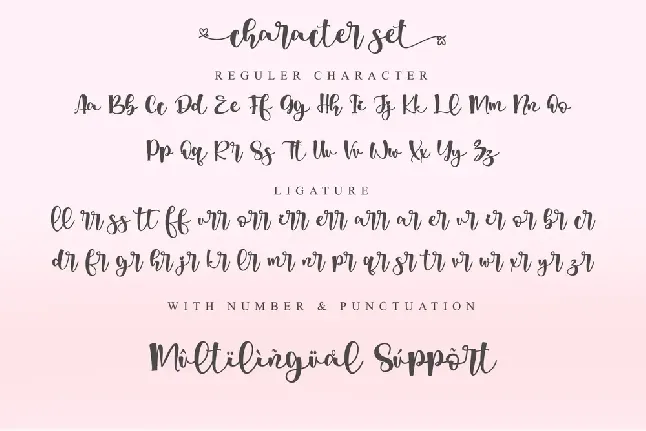 character set
REGULER CHARACTER
Aa Bb Cc Dd Ee Ff Gg Hh Ii Jj Kk Ll Mm Nn Oo
Pp Qq Rr Ss Tt Uu Vv Ww Xx Yy Zz
LIGATURE
ll rr ss tt ff urr orr irr err arr ar er ur ir or br cr
dr fr gr hr jr kr lr mr nr pr qr sr tr vr wr xr yr zr
WITH NUMBER & PUNCTUATION
Mûltïlìñgüål Súppõrt